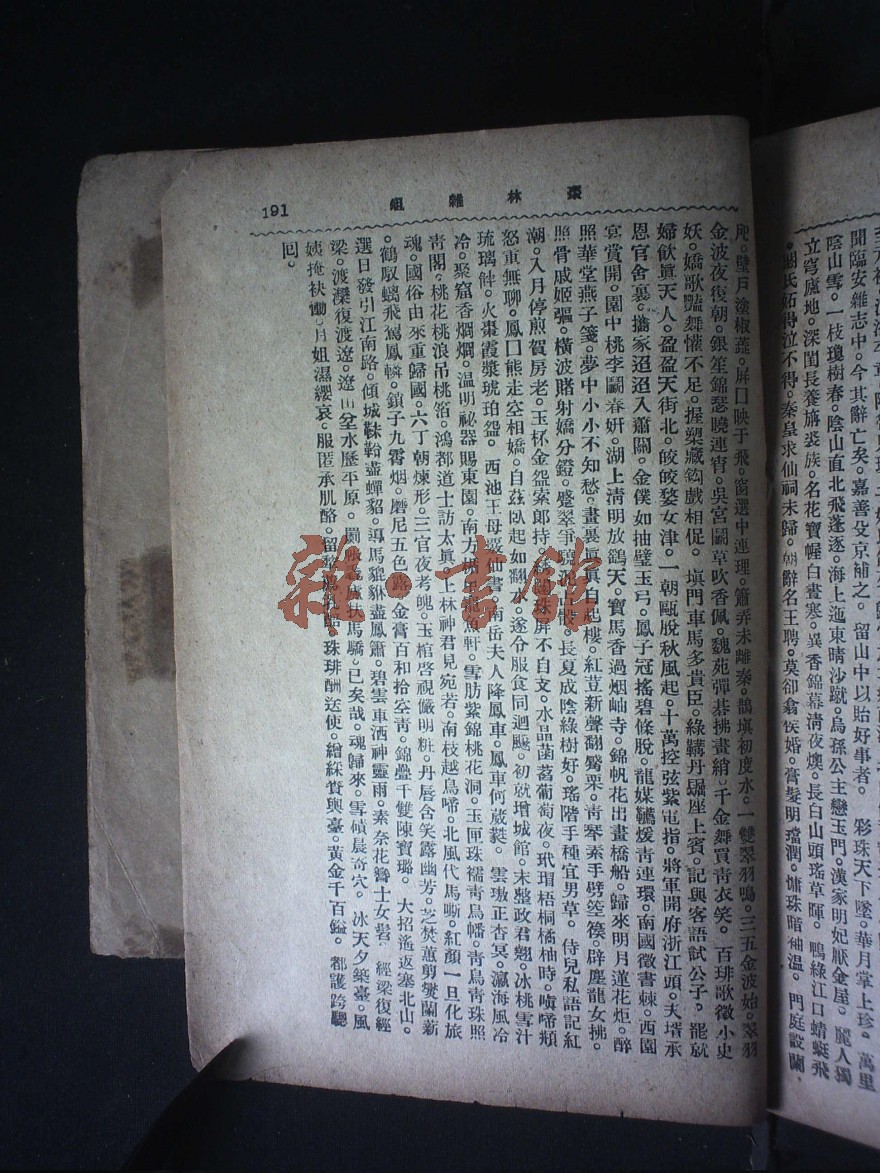 至
聞臨安雜志中。今其辭亡矣。嘉善殳京補之。留山中以貽好事者。 彩珠天下墜。華月掌上珍。萬里
陰山雪。一枝瓊樹春。陰山直北飛蓬逐。海上迤東晴沙蹴。烏孫公主戀玉門。漢家明妃厭金屋。麗人獨
立穹廬地。深閨長養旃裘族。名花寶幄白晝寒。異香錦幕淸夜燠。長白山頭瑤草暉。鴨綠江口蜻蜓飛
。閼氏妬得泣不得。秦皇求仙祠未歸。朝辭名王聘。莫卻翕侯婚。膏髮明璫潤。慵珠暗袖溫。門庭設闌
戺。璧戶塗椒蘁。屏 映于飛。窗選中連理。簫弄未離秦。鵲塡初度水。一雙翠羽鳴。三五金波始。翠羽
金波夜復朝。銀笙錦瑟曉連宵。吳宮鬭草吹香佩。魏苑彈碁拂畫綃。千金舞買靑衣笑。百琲歌徵小史
妖。嬌歌豔舞懽不足。握槊藏鈎戲相促。塡門車馬多貴臣。綠鞲丹驌座上賓。記與客語試公子。罷就
婦飮眞天人。盈盈天街北。皎皎婺女津。一朝甌脫秋風起。十萬控弦紫電指。將軍開府浙江頭。天壻承
恩官舍裏。擕家迢迢入蕭關。金僕如抽璧玉弓。鳳子冠搖碧條脫。龍媒轡煖靑連環。南國徵書棘。西園
宴賞開。園中桃李鬭春姸。湖上淸明放鷂天。寶馬香過烟岫寺。錦帆花出畫橋船。歸來明月蓮花炬。醉
照華堂燕子箋。夢中小小不知愁。畫裏眞眞自起樓。紅荳新聲翻觱栗。靑琴素手劈箜篌。辟塵龍女拂。
照骨戚姬彄。橫波賭射嬌分鐙。蹙翠爭驍 。長夏成陰綠樹好。瑤階手種宜男草。侍兒私語記紅
潮。入月停煎賀房老。玉杯金盌索郎持。 珠屏不自支。水晶菡萏葡萄夜。玳瑁梧桐橘柚時。嗔啼類
怒重無聊。鳳 熊走空相嬌。自茲臥起如翻水。遂令服食同迴飈。初就增城館。未整政君翹。冰桃雪汁
琉璃觧。火棗霞漿琥珀盌。西池王母 仙書。南岳夫人降鳳車。鳳車何葳蕤。雲璈正杳冥。瀛海風冷
冷。聚窟香烱烱。溫明祕器賜東園。南方 魚軒。雪肪紫錦桃花洞。玉匣珠襦靑鳥幡。靑鳥靑珠照
靑閣。桃花桃浪吊桃箔。鴻都道士訪太眞。上林神君見宛若。南枝越鳥啼。北風代馬嘶。紅顏一旦化旅
魂。國俗由來重歸國。六丁朝煉形。三官夜考魄。玉棺啓視儼明粧。丹唇含笑露幽芳。芝焚蕙剪爕蘭薪
。鶴馭螭飛駕鳳轔。鎖子九霄烟。磨尼五色露。金膏百和拾空靑。錦疊千雙陳寶璐。大招遙返塞北山。
選日發引江南路。傾城韎鞈盡蟬貂。導馬貔貅盡鳳簫。碧雲車洒神靈雨。素奈花簪士女髻。經梁復經
梁。渡灤復渡遼。遼山坌水歷平原。 扶馬驕。已矣哉。魂歸來。雪幀晨奇穴。冰天夕築臺。風
姨掩袂慟。月姐濕纓哀。服匿承肌酪。留犂 珠琲酬送使。繒綵賚輿臺。黃金千百鎰。都護跨驄
回。
棗林雜俎
191
雜·書館